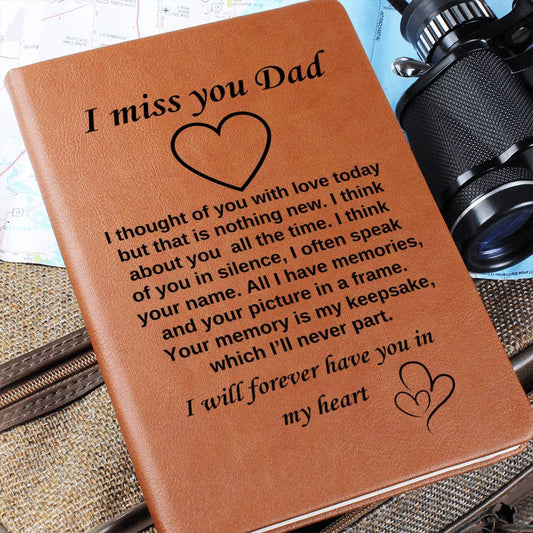 I miss you Dad
I thought of you with love today
but that is nothing new. I think
about you all the time. I think
of you in silence, I often speak
your name. All I have memories,
and your picture in a frame.
Your memory is my keepsake,
which I'll never part.
I will forever have you in
my heart